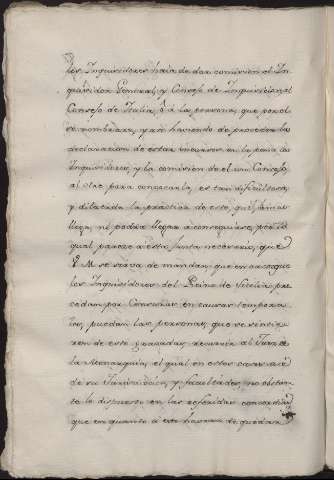 los Inquisidores haia de dar comision el In-
quisidor General, y Consejo de Inquisicion, el
Consejo de Italia, ô a la persona, que por el
se nombrare, y assi haviendo de preceder la
declaracion de estar incursos en la pena los
Inquisidores, y la comision de el un Consejo
al otro para executarla, es tan dificultosa,
y dilatada la practica de esto, que jamas
llega, ni podra llegar à conseguirse, por lo
qual parece à esta Junta necesario, que
V. M. se sirva de mandar, que en caso que
los Inquisidores del Reino de Sicilia pro-
cedan por Censuras en causas tempora-
les, puedan las personas, que se sintie-
ren de esto gravadas, recurrir al Juez de
la Monarquia, el qual en estos casos use
de su Jurisdicion, y facultades, no obstan-
te lo dispuesto en las referidas concordias
que en quanto a esto havran de quedar